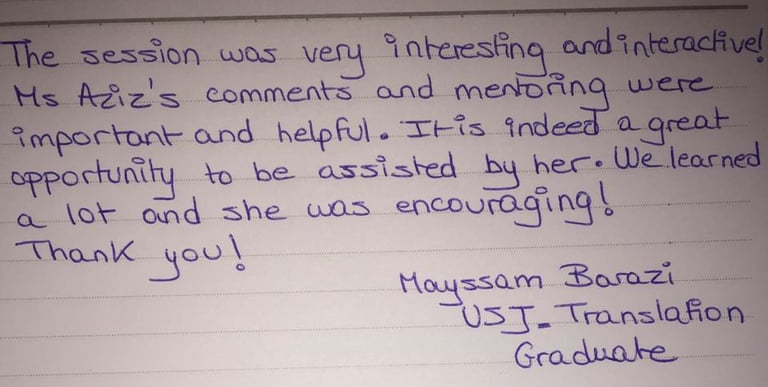 The session was very interesting and interactive!
Ms Aziz's comments and mentoring were
important and helpful. It is indeed a great
opportunity to be assisted by her. We learned
a lot and she was encouraging!
Thank you!
Mayssam Barazi
USJ_ Translation
Graduate